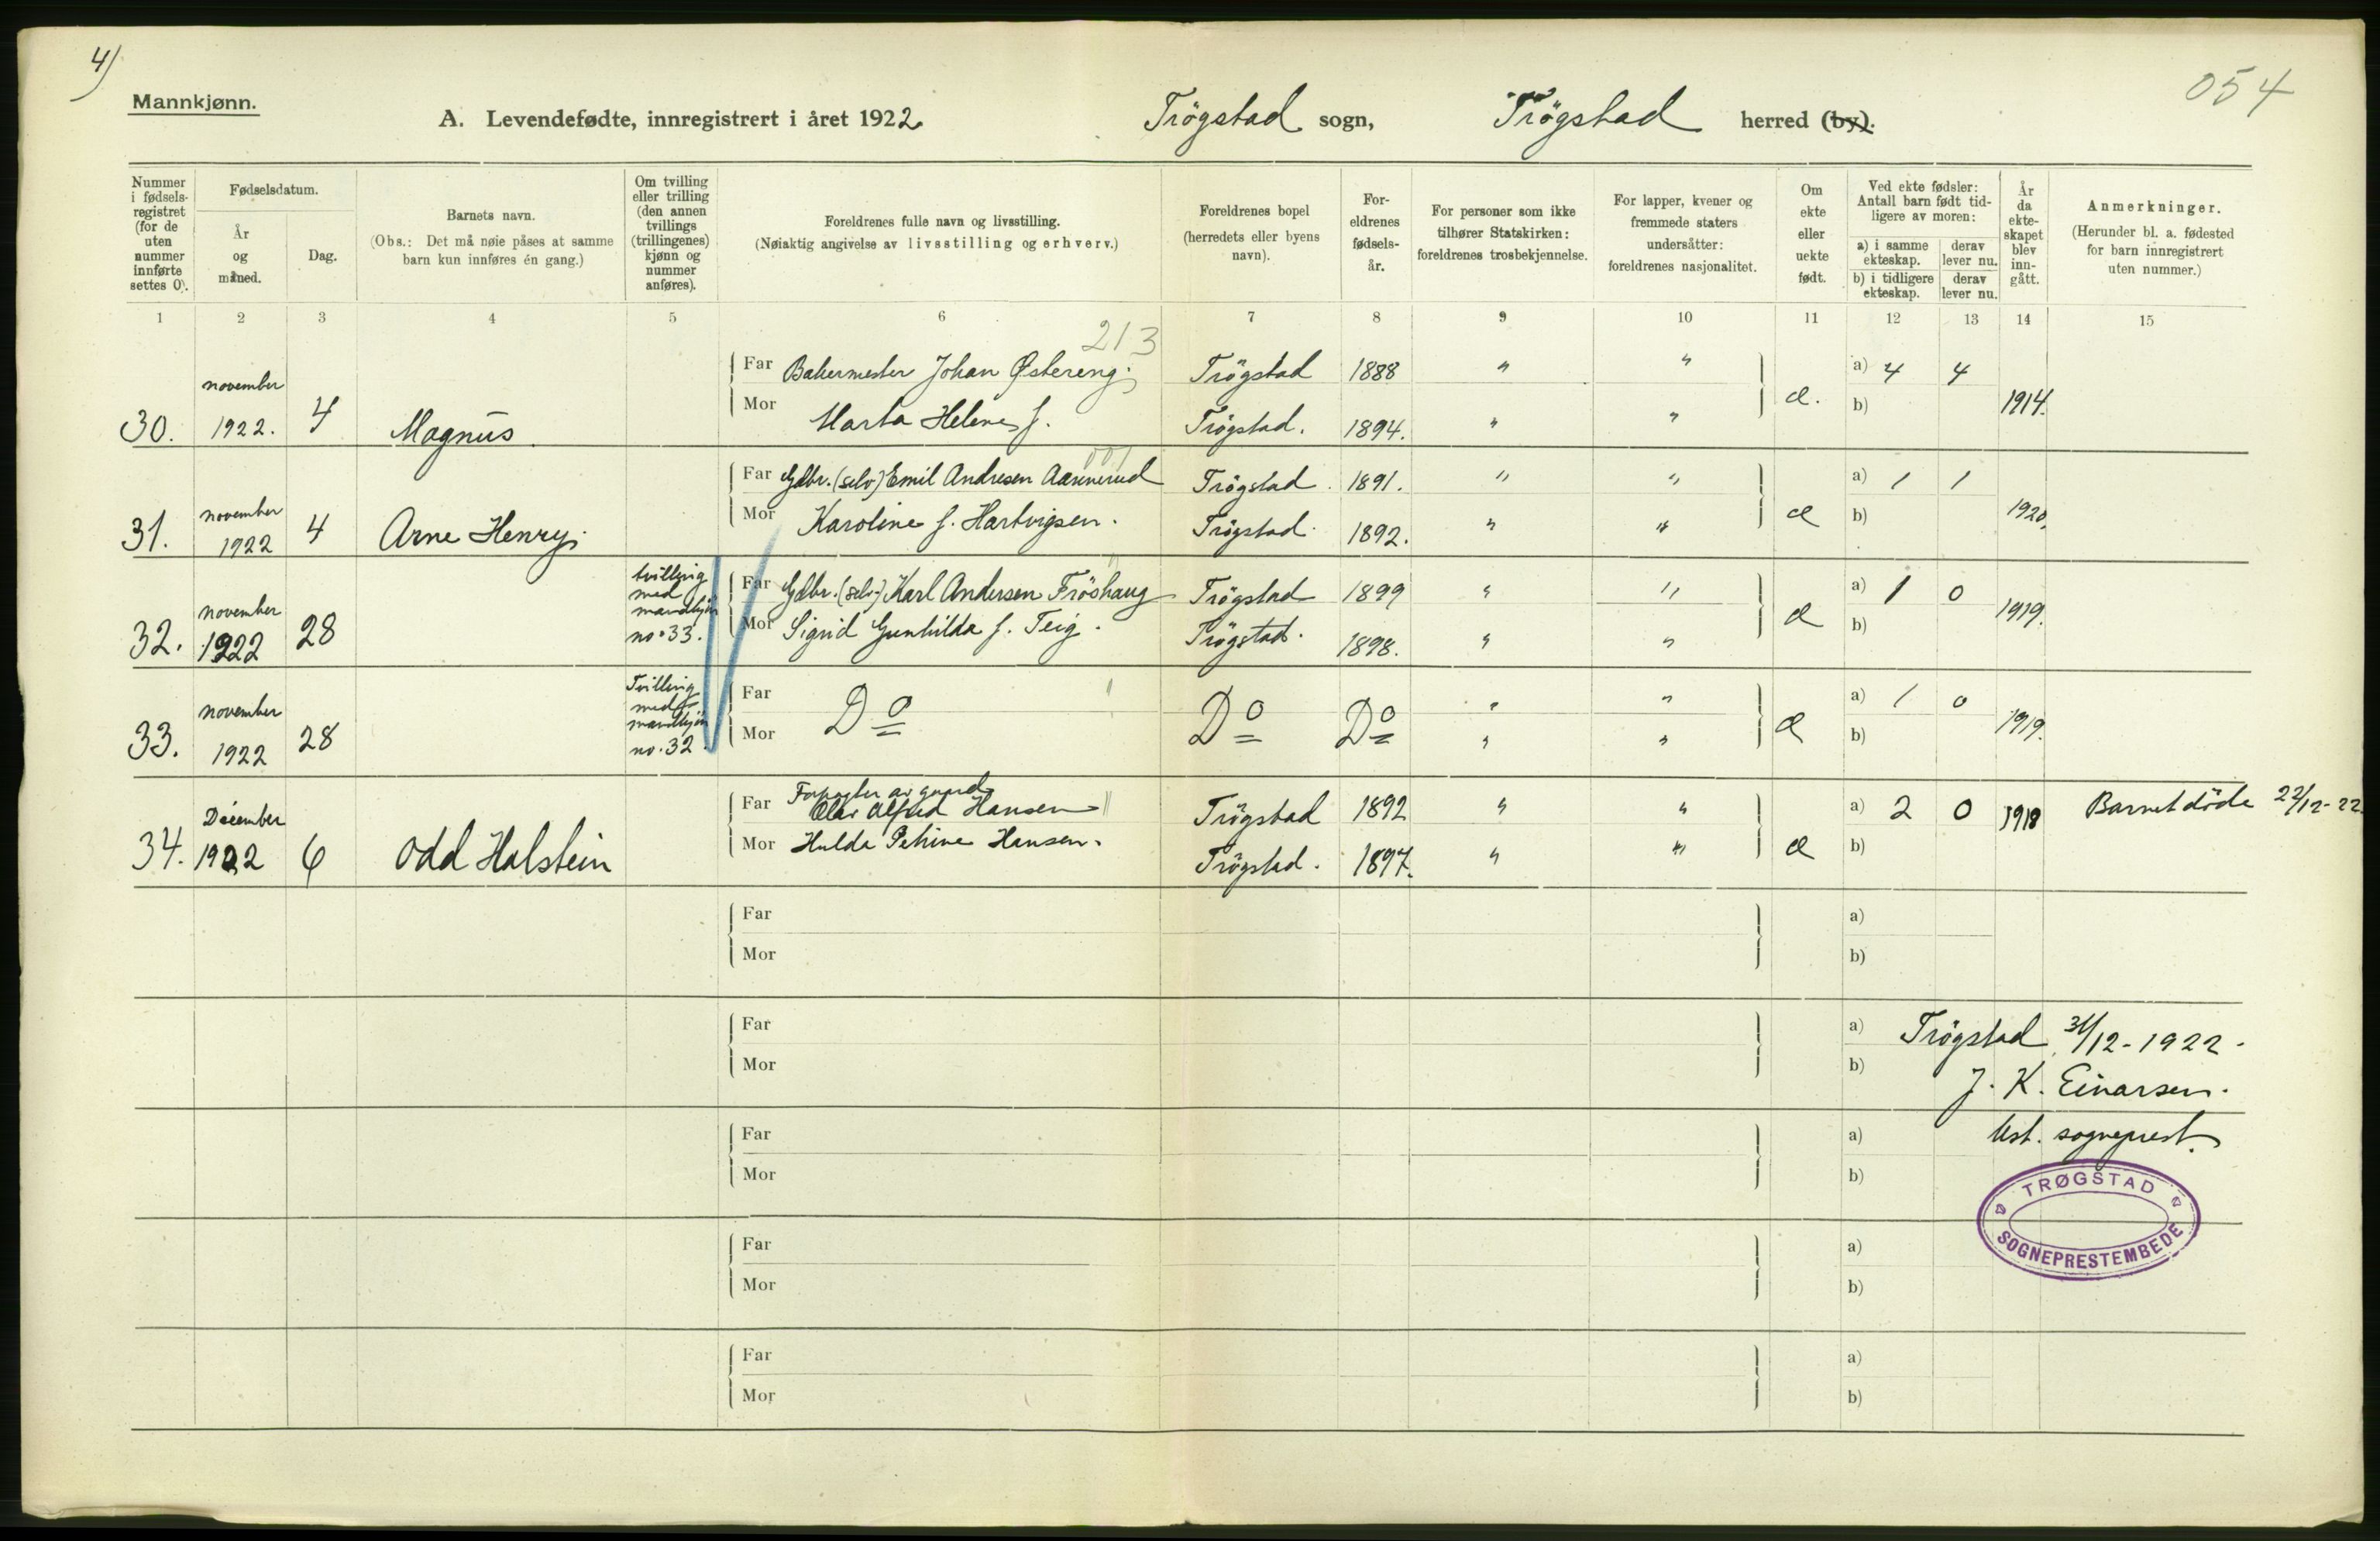 4)
054
Mannkjønn.
A. Levendefødte, innregistrert i året 1922 Trögstad sogn, Trögstad herred (by).
Nummer i fødselsregistret (for de uten nummer innførte settes 0).
Fødselsdatum.
År og måned.
Dag.
Barnets navn.
(Obs.: Det må nøie påses at samme barn kun innføres én gang.)
Om tvilling eller trilling (den annen tvillings (trillingenes) kjønn og nummer anføres).
Foreldrenes fulle navn og livsstilling.
(Nøiaktig angivelse av livsstilling og erhverv.)
Foreldrenes bopel (herredets eller byens navn).
Foreldrenes fødselsår.
For personer som ikke tilhører Statskirken: foreldrenes trosbekjennelse.
For lapper, kvener og fremmede staters undersåtter: foreldrenes nasjonalitet.
Om ekte eller uekte født.
Ved ekte fødsler: Antall barn født tidligere av moren:
a) i samme ekteskap. derav lever nu.
b) i tidligere ekteskap. derav lever nu.
År da ekteskapet blev inngått.
Anmerkninger.
(Herunder bl. a. fødested for barn innregistrert uten nummer.)
1 2 3 4 5 6 7 8 9 10 11 12 13 14 15
213
Far Bakermester Johan Østereng. Trögstad 1888 " " a) 4 4
30. november 1922. 4 Magnus. æ. 1914.
Mor Marta Helene f. Trögstad. 1894. " " b)
001
Far Gdbr. (selv) Emil Andresen Trögstad. 1891. " " a) 1 1
31. november 1922 4 Arne Henry. æ 1920.
Mor Karoline f. Hartvigsen. Trögstad. 1892. " " b)
Far Gdbr. (selv) Karl Andersen Fröshaug Trögstad 1899 " " a) 1 0
32. november 1922 28 tvilling med mandkjøn no. 33. æ 1919.
Mor Sigrid Gunhilda f. Teig. Trögstad. 1898. " " b)
Far " " " a) 1 0
33. november 1922 28 Tvilling med mandkjøn no. 32. Do Do Do æ 1919.
Mor " " b)
Forpagter av gaard
Far Olav Alfred Hansen Trögstad 1892 " " a) 2 0 1918 Barnet döde 22/12-22.
34. December 1922 6 Odd Halstein æ
Mor Hulda Petrine Hansen. Trögstad. 1897. " " b)
Far a)
Mor b)
Far a) Trögstad 31/12-1922.
Mor b) J. K. Einarsen.
Far a) kst. sogneprest.
Mor b)
TRØGSTAD
SOGNEPRESTEMBEDE
Far a)
Mor b)
Far a)
Mor b)